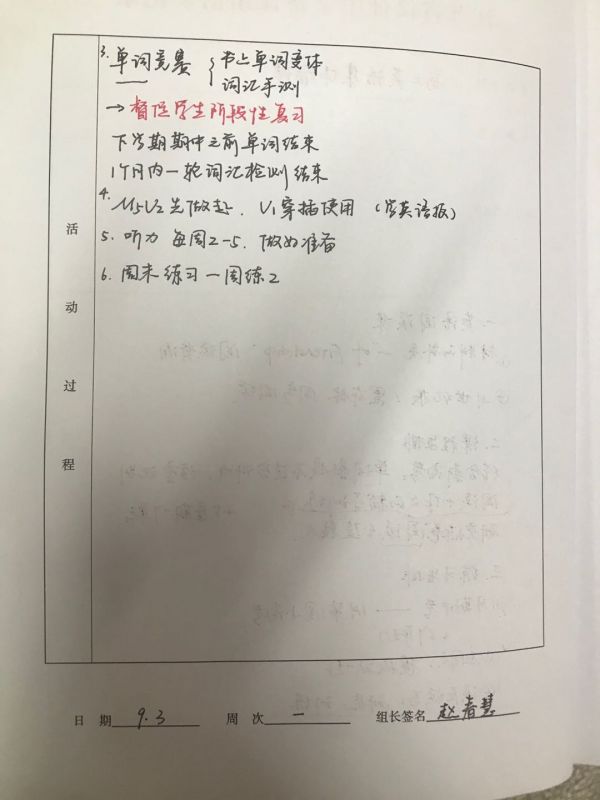 3. 单词竞赛 { 书上单词变体
词汇手测
→ 督促学生阶段性复习
下学期期中之前单词结束
1个月内一轮词汇检测结束
4. M5U2先做起. U1穿插使用 (学英语报)
5. 听力 每周2-5. 做好准备
6. 周末练习一周练2
活
动
过
程
日 期 9.3 周 次 一 组长签名 赵春慧